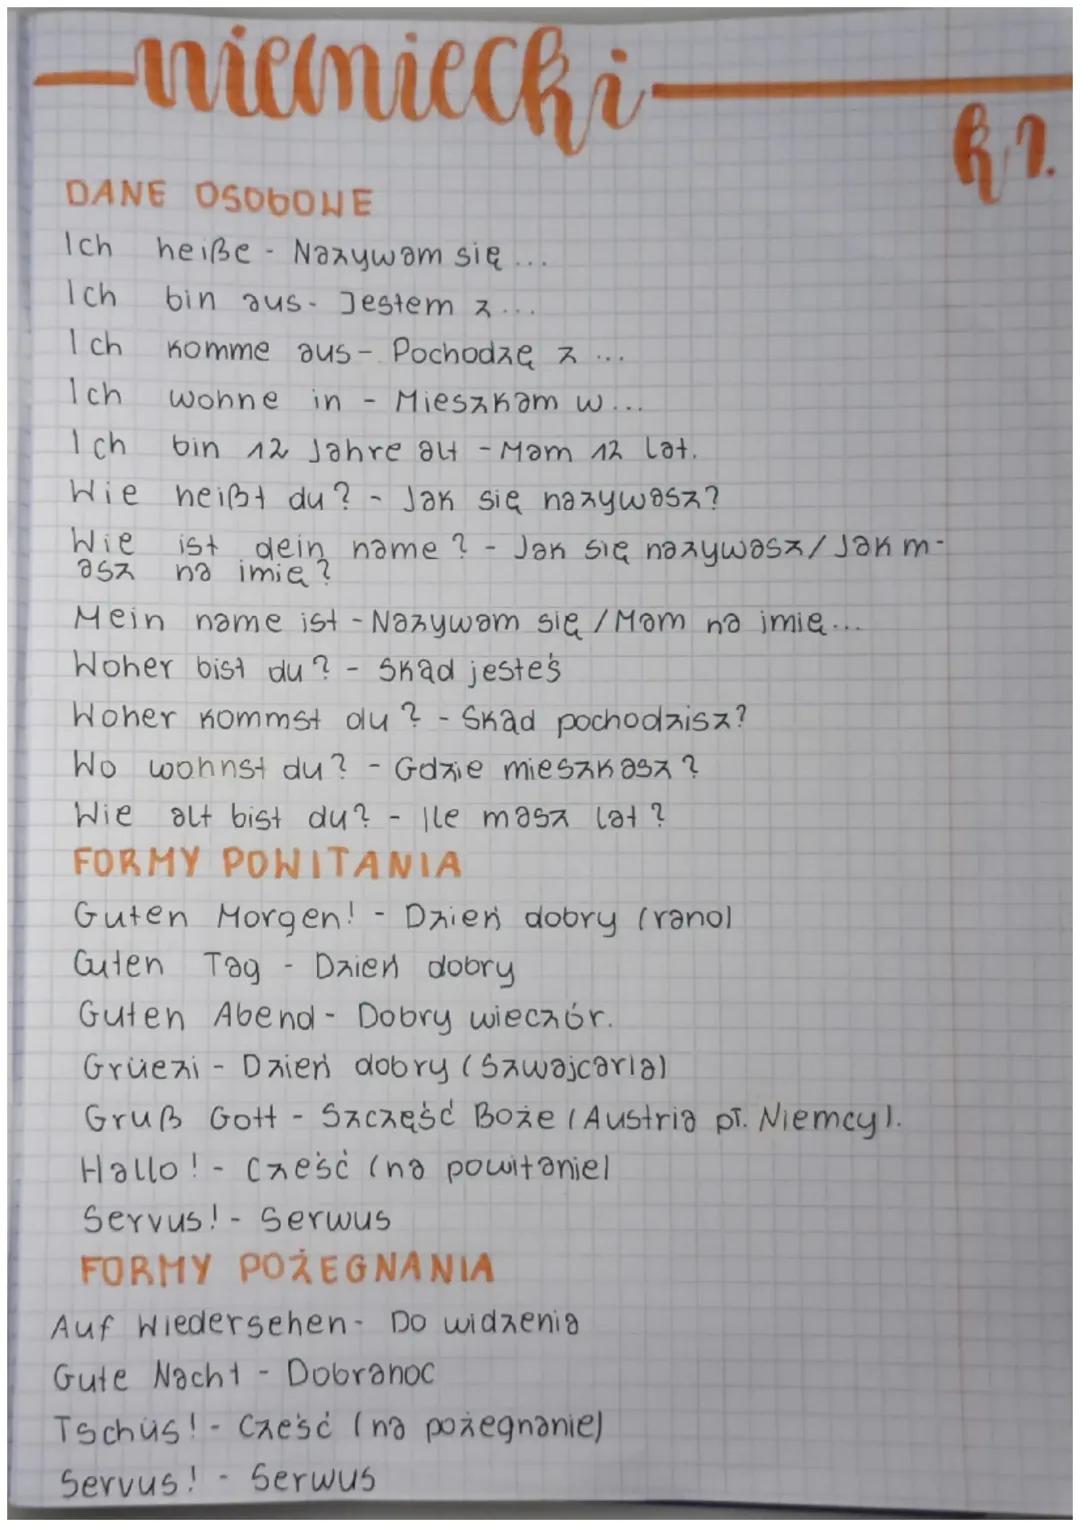 niemiecki
k1.
DANE OSOBOWE
Ich heiße - Nazywam się ...
Ich bin aus - Jestem z ...
Ich komme aus - Pochodzę z ...
Ich wohne in - Mieszkam w...
Ich bin 12 Jahre alt - Mam 12 lat.
Wie heißt du? - Jak się nazywasz?
Wie ist dein name? - Jak się nazywasz/Jak m-
asz na imię?
Mein name ist - Nazywam się / Mam na imię...
Woher bist du? - Skąd jesteś
Woher kommst du? - Skąd pochodzisz?
Wo wohnst du? - Gdzie mieszkasz?
Wie alt bist du? - Ile masz lat?
FORMY POWITANIA
Guten Morgen! - Dzień dobry (rano)
Guten Tag - Dzień dobry
Guten Abend - Dobry wieczór.
Grüezi - Dzień dobry (Szwajcaria)
Gruß Gott - Szczęść Boże (Austria pł. Niemcy).
Hallo! - Cześć (na powitanie)
Servus! - Serwus
FORMY POŻEGNANIA
Auf Wiedersehen - Do widzenia
Gute Nacht - Dobranoc
Tschüs! - Cześć (na pożegnanie)
Servus! - Serwus